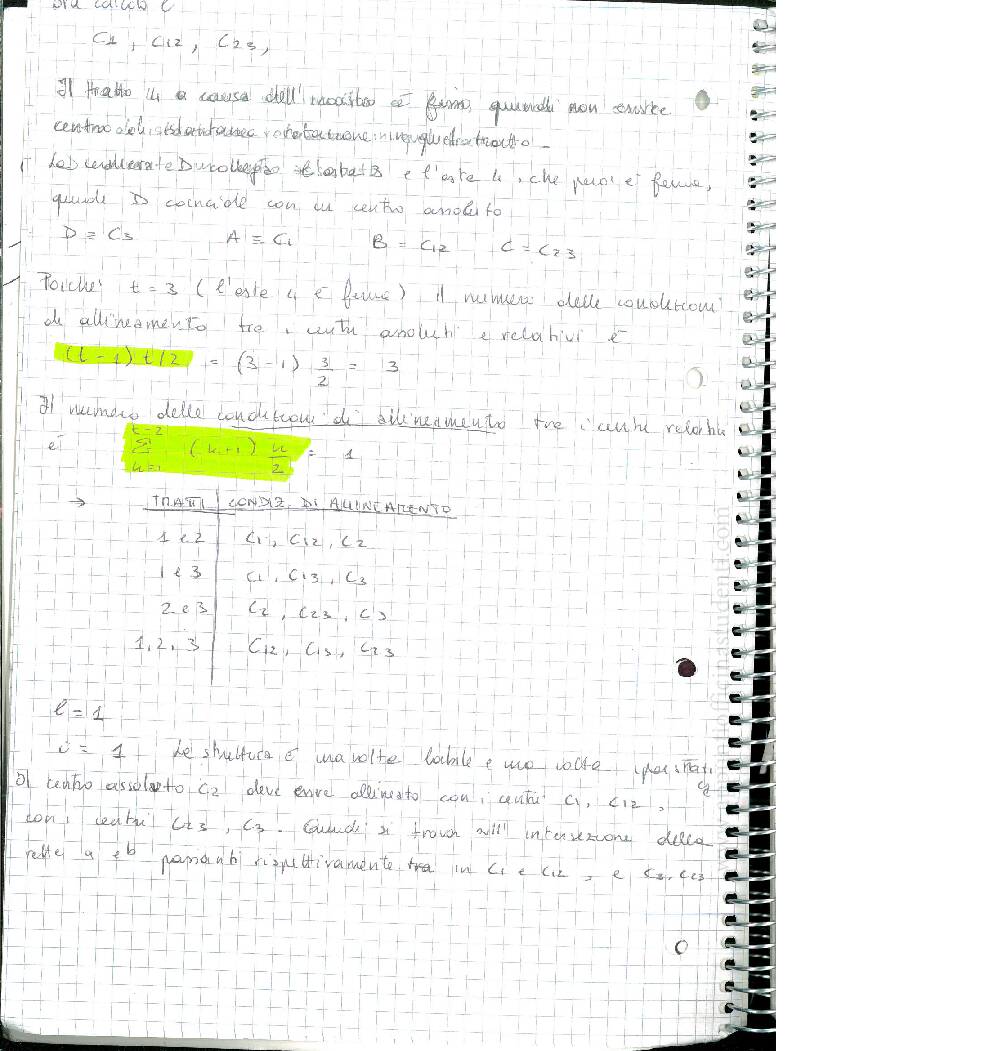 C1, C12, C23,
Il tratto 4 a causa dell'incastro è fermo, quindi non esiste
centro di istantanea rotazione
e l'asta 4, che però è ferma,
quindi D coincide con un centro assoluto
D ≡ C3 A ≡ C1 B = C12 C = C23
Poiché t = 3 (l'asta 4 è ferma) il numero delle condizioni
di allineamento tra i centri assoluti e relativi è
(t-1) t/2 = (3-1) 3/2 = 3
Il numero delle condizioni di allineamento tra i centri relativi
è t-2 Σ n=1 (n+1) n/2 = 1
→ TRATTI CONDIZ. DI ALLINEAMENTO
1 e 2 C1, C12, C2
1 e 3 C1, C13, C3
2 e 3 C2, C23, C3
1, 2, 3 C12, C13, C23
l = 1
i = 1 La struttura è una volta labile e una volta iperstatica
Il centro assoluto C2 deve essere allineato con i centri C1, C12,
con i centri C23, C3. Quindi si trova all'intersezione delle
rette a e b passanti rispettivamente tra in C1 e C12, e C3, C23